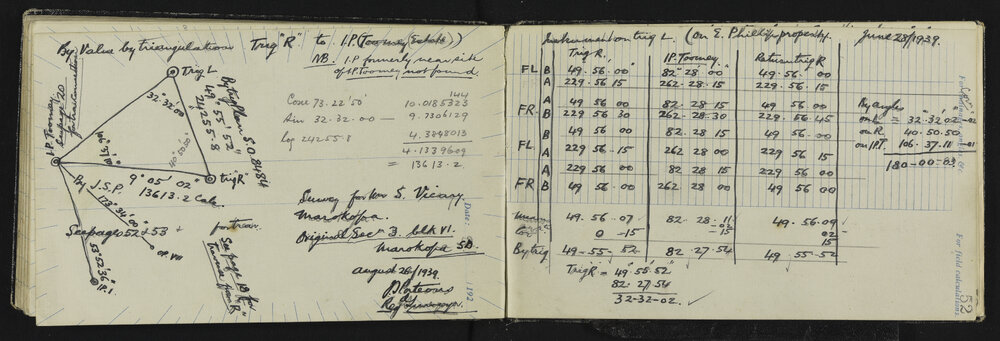 By Value by triangulation Trig "R" to I.P. (Toomey Estate)
NB. I.P formerly near site
of I.P. Toomey not found.
Trig L
I.P. Toomey
See page '20
32° 32' 00"
By trig Plan S.O 8484
49° 55' 52"
24255.8
40.50.50
Cosec 73.22'50"
10.0185323
Sin 32.32.00 —
9.7306129
log 24255.8
4.3848013
4.1339609
= 13613.2
trig "R"
9° 05' 02"
13613.2 Calc.
By J.S.P.
173° 34' 00"
See pages 52 + 53
53° 52' 36"
I.P. 1
for trav.
See page
traverse from R
Survey for S. Vicary.
Marokopa.
Original Sec 3 blk VI.
Marokopa SD.
August 26/1939.
Reg Surveyor.
Date: 192
Instrument on trig L. (on E. Phillips property.
June 28/1939.
Trig R. I.P. Toomey. Return trig R
FL B 49.56.00" 82° 28' 00" 49.56.00
A 229.56 15 262.28.15 229.56.15
FR A 49 56 00 82.28 15 49.56 00
B 229 56 30 262.28.30 229.56 45
FL B 49 56 00 82.28 15 49.56 00
A 229.56 15 262 28 00 229 56 15
FR A 229 56 00 82 28 15 229 56 00
B 49 56 00 262 28 00 49 56 00
Mean 49.56.07 82.28.11 49.56.09
0 -15 -02 -15 02 15
By trig 49-55-52 82 27.54 49.55-52
Trig R = 49° 55' 52"
82.27.54
32-32-02.
By angles
on L = 32° 32' 02" -02
on R, 40.50.50.
on IPT. 106.37.11 -01
180-00-03
For field calculations, etc.
For field calculations
52